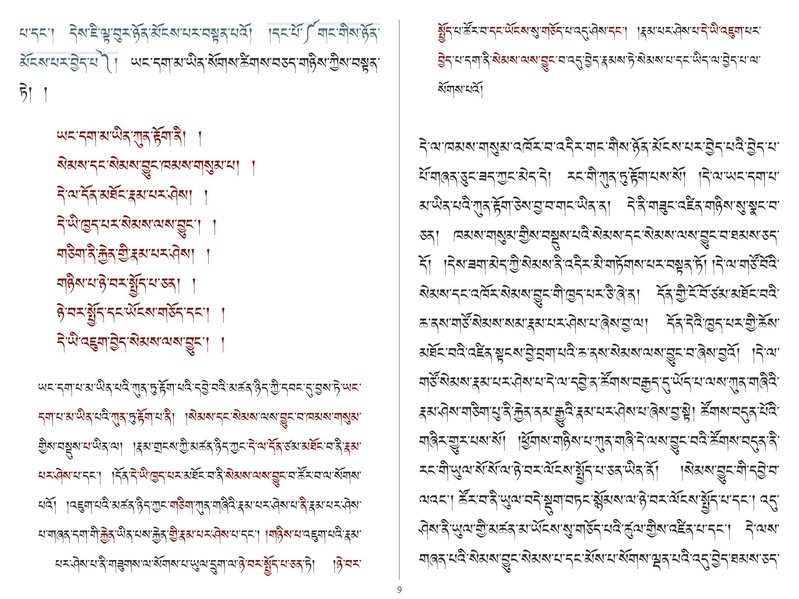 པ་དང་། དེས་ཇི་ལྟ་བུར་ཉོན་མོངས་པར་བསྟན་པའོ། །དང་པོ་༼གང་གིས་ཉོན་
མོངས་པར་བྱེད་པ་༽། ཡང་དག་མ་ཡིན་སོགས་ཚིགས་བཅད་གཉིས་ཀྱིས་བསྟན་
ཏེ། །
ཡང་དག་མ་ཡིན་ཀུན་རྟོག་ནི། །
སེམས་དང་སེམས་བྱུང་ཁམས་གསུམ་པ། །
དེ་ལ་དོན་མཐོང་རྣམ་པར་ཤེས། །
དེ་ཡི་ཁྱད་པར་སེམས་ལས་བྱུང་། །
གཅིག་ནི་རྐྱེན་གྱི་རྣམ་པར་ཤེས། །
གཉིས་པ་ཉེ་བར་སྤྱོད་པ་ཅན། །
ཉེ་བར་སྤྱོད་དང་ཡོངས་གཅོད་དང་། །
དེ་ཡི་འཇུག་བྱེད་སེམས་ལས་བྱུང་། །
ཡང་དག་པ་མ་ཡིན་པའི་ཀུན་ཏུ་རྟོག་པའི་དབྱེ་བའི་མཚན་ཉིད་ཀྱི་དབང་དུ་བྱས་ཏེ་ཡང་
དག་པ་མ་ཡིན་པའི་ཀུན་ཏུ་རྟོག་པ་ནི། །སེམས་དང་སེམས་ལས་བྱུང་བ་ཁམས་གསུམ་
གྱིས་བསྡུས་པ་ཡིན་ལ། །རྣམ་གྲངས་ཀྱི་མཚན་ཉིད་ཀྱང་དེ་ལ་དོན་ཙམ་མཐོང་བ་ནི་རྣམ་
པར་ཤེས་པ་དང་། །དོན་དེ་ཡི་ཁྱད་པར་མཐོང་བ་ནི་སེམས་ལས་བྱུང་བ་ཚོར་བ་ལ་སོགས་
པའོ། །འཇུག་པའི་མཚན་ཉིད་ཀྱང་གཅིག་ཀུན་གཞིའི་རྣམ་པར་ཤེས་པ་ནི་རྣམ་པར་ཤེས་
པ་གཞན་དག་གི་རྐྱེན་ཡིན་པས་རྐྱེན་གྱི་རྣམ་པར་ཤེས་པ་དང་། །གཉིས་པ་འཇུག་པའི་རྣམ་
པར་ཤེས་པ་ནི་གཟུགས་ལ་སོགས་པ་ཡུལ་དྲུག་ལ་ཉེ་བར་སྤྱོད་པ་ཅན་ཏེ། །ཉེ་བར་
སྤྱོད་པ་ཚོར་བ་དང་ཡོངས་སུ་གཅོད་པ་འདུ་ཤེས་དང་། །རྣམ་པར་ཤེས་པ་དེ་ཡི་འཇུག་པར་
བྱེད་པ་དག་ནི་སེམས་ལས་བྱུང་བ་འདུ་བྱེད་རྣམས་ཏེ་སེམས་པ་དང་ཡིད་ལ་བྱེད་པ་ལ་
སོགས་པའོ།
དེ་ལ་ཁམས་གསུམ་འཁོར་བ་འདིར་གང་གིས་ཉོན་མོངས་པར་བྱེད་པའི་བྱེད་པ་
པོ་གཞན་ཅུང་ཟད་ཀྱང་མེད་དེ། རང་གི་ཀུན་ཏུ་རྟོག་པས་སོ། །དེ་ལ་ཡང་དག་པ་
མ་ཡིན་པའི་ཀུན་རྟོག་ཅེས་བྱ་བ་གང་ཡིན་ན། དེ་ནི་གཟུང་འཛིན་གཉིས་སུ་སྣང་བ་
ཅན། ཁམས་གསུམ་གྱིས་བསྡུས་པའི་སེམས་དང་སེམས་ལས་བྱུང་བ་ཐམས་ཅད་
དོ། །དེས་ཟག་མེད་ཀྱི་སེམས་ནི་འདིར་མི་གཏོགས་པར་བསྟན་ཏོ། །དེ་ལ་གཙོ་བོའི་
སེམས་དང་འཁོར་སེམས་བྱུང་གི་ཁྱད་པར་ཅི་ཞེ་ན། དོན་གྱི་ངོ་བོ་ཙམ་མཐོང་བའི་
ཆ་ནས་གཙོ་སེམས་སམ་རྣམ་པར་ཤེས་པ་ཞེས་བྱ་ལ། དོན་དེའི་ཁྱད་པར་གྱི་ཆོས་
མཐོང་བའི་འཛིན་སྟངས་བྱེ་བྲག་པའི་ཆ་ནས་སེམས་ལས་བྱུང་བ་ཞེས་བྱའོ། །དེ་ལ་
གཙོ་སེམས་རྣམ་པར་ཤེས་པ་དེ་ལ་དབྱེ་ན་ཚོགས་བརྒྱད་དུ་ཡོད་པ་ལས་ཀུན་གཞིའི་
རྣམ་ཤེས་གཅིག་པུ་ནི་རྐྱེན་ནམ་རྒྱུའི་རྣམ་པར་ཤེས་པ་ཞེས་བྱ་སྟེ། ཚོགས་བདུན་པོའི་
གཞིར་གྱུར་པས་སོ། །ཕྱོགས་གཉིས་པ་ཀུན་གཞི་དེ་ལས་བྱུང་བའི་ཚོགས་བདུན་ནི་
རང་གི་ཡུལ་སོ་སོ་ལ་ཉེ་བར་ལོངས་སྤྱོད་པ་ཅན་ཡིན་ནོ། །སེམས་བྱུང་གི་དབྱེ་བ་
ལའང་། ཚོར་བ་ནི་ཡུལ་བདེ་སྡུག་བཏང་སྙོམས་ལ་ཉེ་བར་ལོངས་སྤྱོད་པ་དང་། འདུ་
ཤེས་ནི་ཡུལ་གྱི་མཚན་མ་ཡོངས་སུ་གཅོད་པའི་ཚུལ་གྱིས་འཛིན་པ་དང་། དེ་ལས་
གཞན་པའི་སེམས་བྱུང་སེམས་པ་དང་མོས་པ་སོགས་ལྡན་པའི་འདུ་བྱེད་ཐམས་ཅད་
9